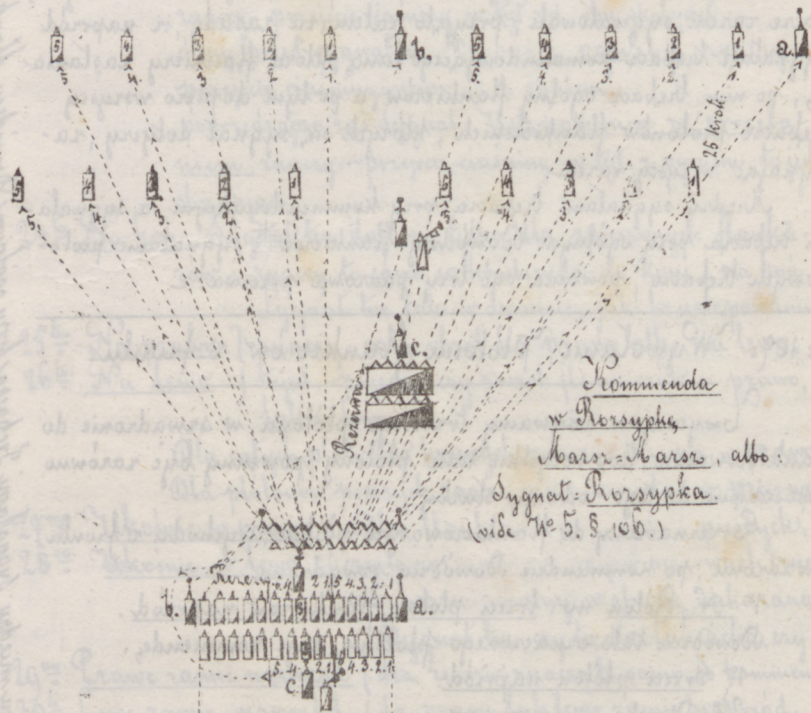 5 4 3 2 1 b. 5 4 3 2 1 a.
25 Krok.
5 4 3 2 1 5 4 3 2 1
c.
Rezerwa
Kommenda
w Rozsypkę
Marsz-Marsz, albo:
Sygnał-Rozsypka
(vide № 5. § 106.)
Rezerwa 2.1 2 1 5 4.3.2.1
b. a.
5.4. 2.1. 4.3.2.1
c.